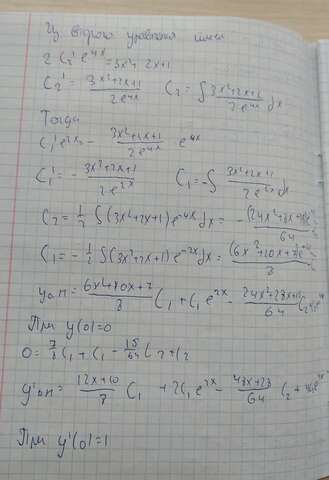 Из второго уравнения имеем
2 C₂' e^{4x} = 3x² + 2x+1
C₂' = \frac{3x²+2x+1}{2e^{4x}} C₂ = ∫ \frac{3x²+2x+1}{2e^{4x}} dx
Тогда
C₁' e^{2x} = - \frac{3x²+2x+1}{2e^{4x}} e^{4x}
C₁' = - \frac{3x²+2x+1}{2e^{2x}} C₁ = -∫ \frac{3x²+2x+1}{2e^{2x}} dx
C₂ = \frac{1}{2} ∫ (3x²+2x+1) e^{-4x} dx = - 64
C₁ = - \frac{1}{2} ∫ (3x²+2x+1) e^{-2x} dx = \frac{(6x²+10x+7)e}{8}
y_{он} = \frac{6x²+10x+7}{8} C₁ + C₁ e^{2x} - 64 C₂
При y(0)=0
0 = \frac{7}{8} C₁ + C₁ - \frac{15}{64} C₂ + C₂
y'_{он} = \frac{12x+10}{8} C₁ + 2C₁ e^{2x} - \frac{48x+28}{64} C₂ +
При y'(0)=1